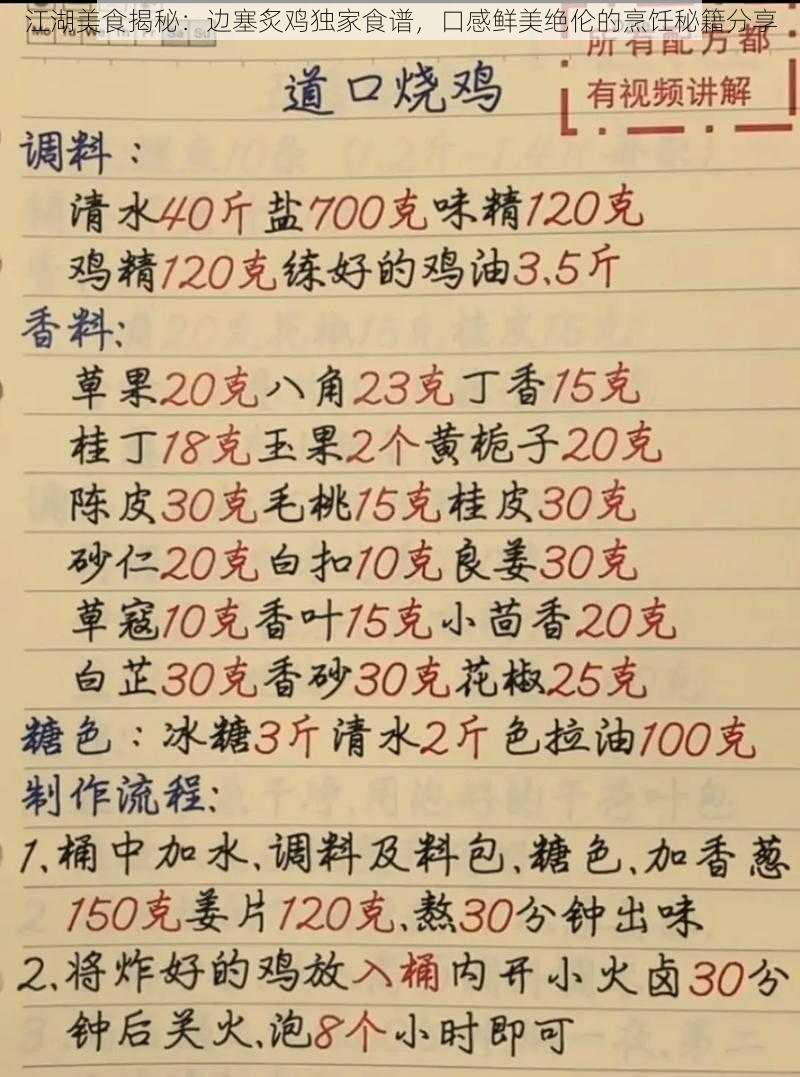 江湖美食揭秘：边塞炙鸡独家食谱，口感鲜美绝伦的烹饪秘籍分享
所有配方都
有视频讲解
道口烧鸡
调料：
清水40斤盐700克味精120克
鸡精120克练好的鸡油3.5斤
香料：
草果20克八角23克丁香15克
桂丁18克玉果2个黄栀子20克
陈皮30克毛桃15克桂皮30克
砂仁20克白扣10克良姜30克
草寇10克香叶15克小茴香20克
白芷30克香砂30克花椒25克
糖色：冰糖3斤清水2斤色拉油100克
制作流程：
1、桶中加水、调料及料包、糖色、加香葱
150克姜片120克、熬30分钟出味
2、将炸好的鸡放入桶内开小火卤30分
钟后关火、泡8个小时即可